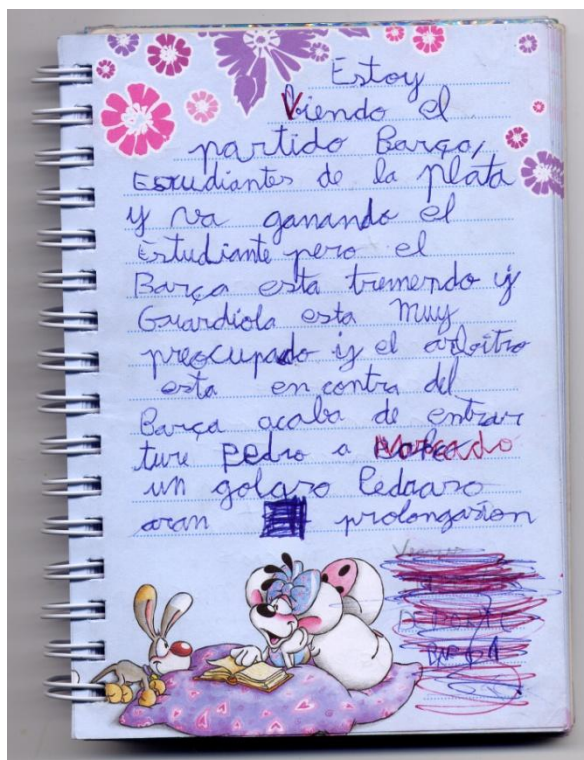 Estoy
Viendo el
partido Barça,
Estudiantes de la plata
y va ganando el
Estudiante pero el
Barça esta tremendo y
Guardiola esta muy
preocupado y el arbitro
esta en contra del
Barça acaba de entrar
ture pedro a Marcado
un golazo Pedrazo
aran prolongasion